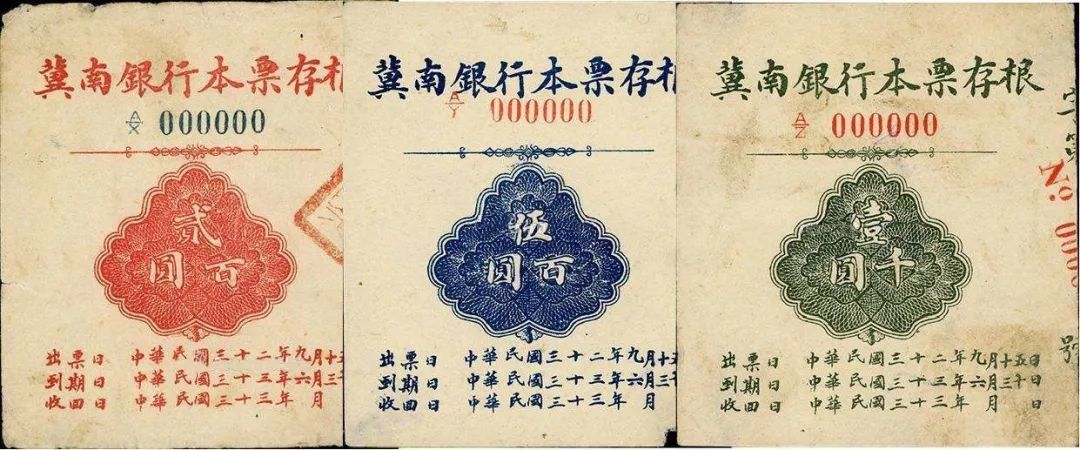 冀南銀行本票存根
A/X 000000
貳百圓
出票日 中華民國三十二年九月十五
到期日 中華民國三十三年六月三十
收回日 中華民國三十三年 月
冀南銀行本票存
A/Y 000000
伍百圓
出票日 中華民國三十二年九月十五
到期日 中華民國三十三年六月三十
收回日 中華民國三十三年 月
冀南銀行本票存根
A/Z 000000
壹千圓
出票日 中華民國三十二年九月十五日
到期日 中華民國三十三年六月三十日
收回日 中華民國三十三年 月 日
字第
No. 000
號